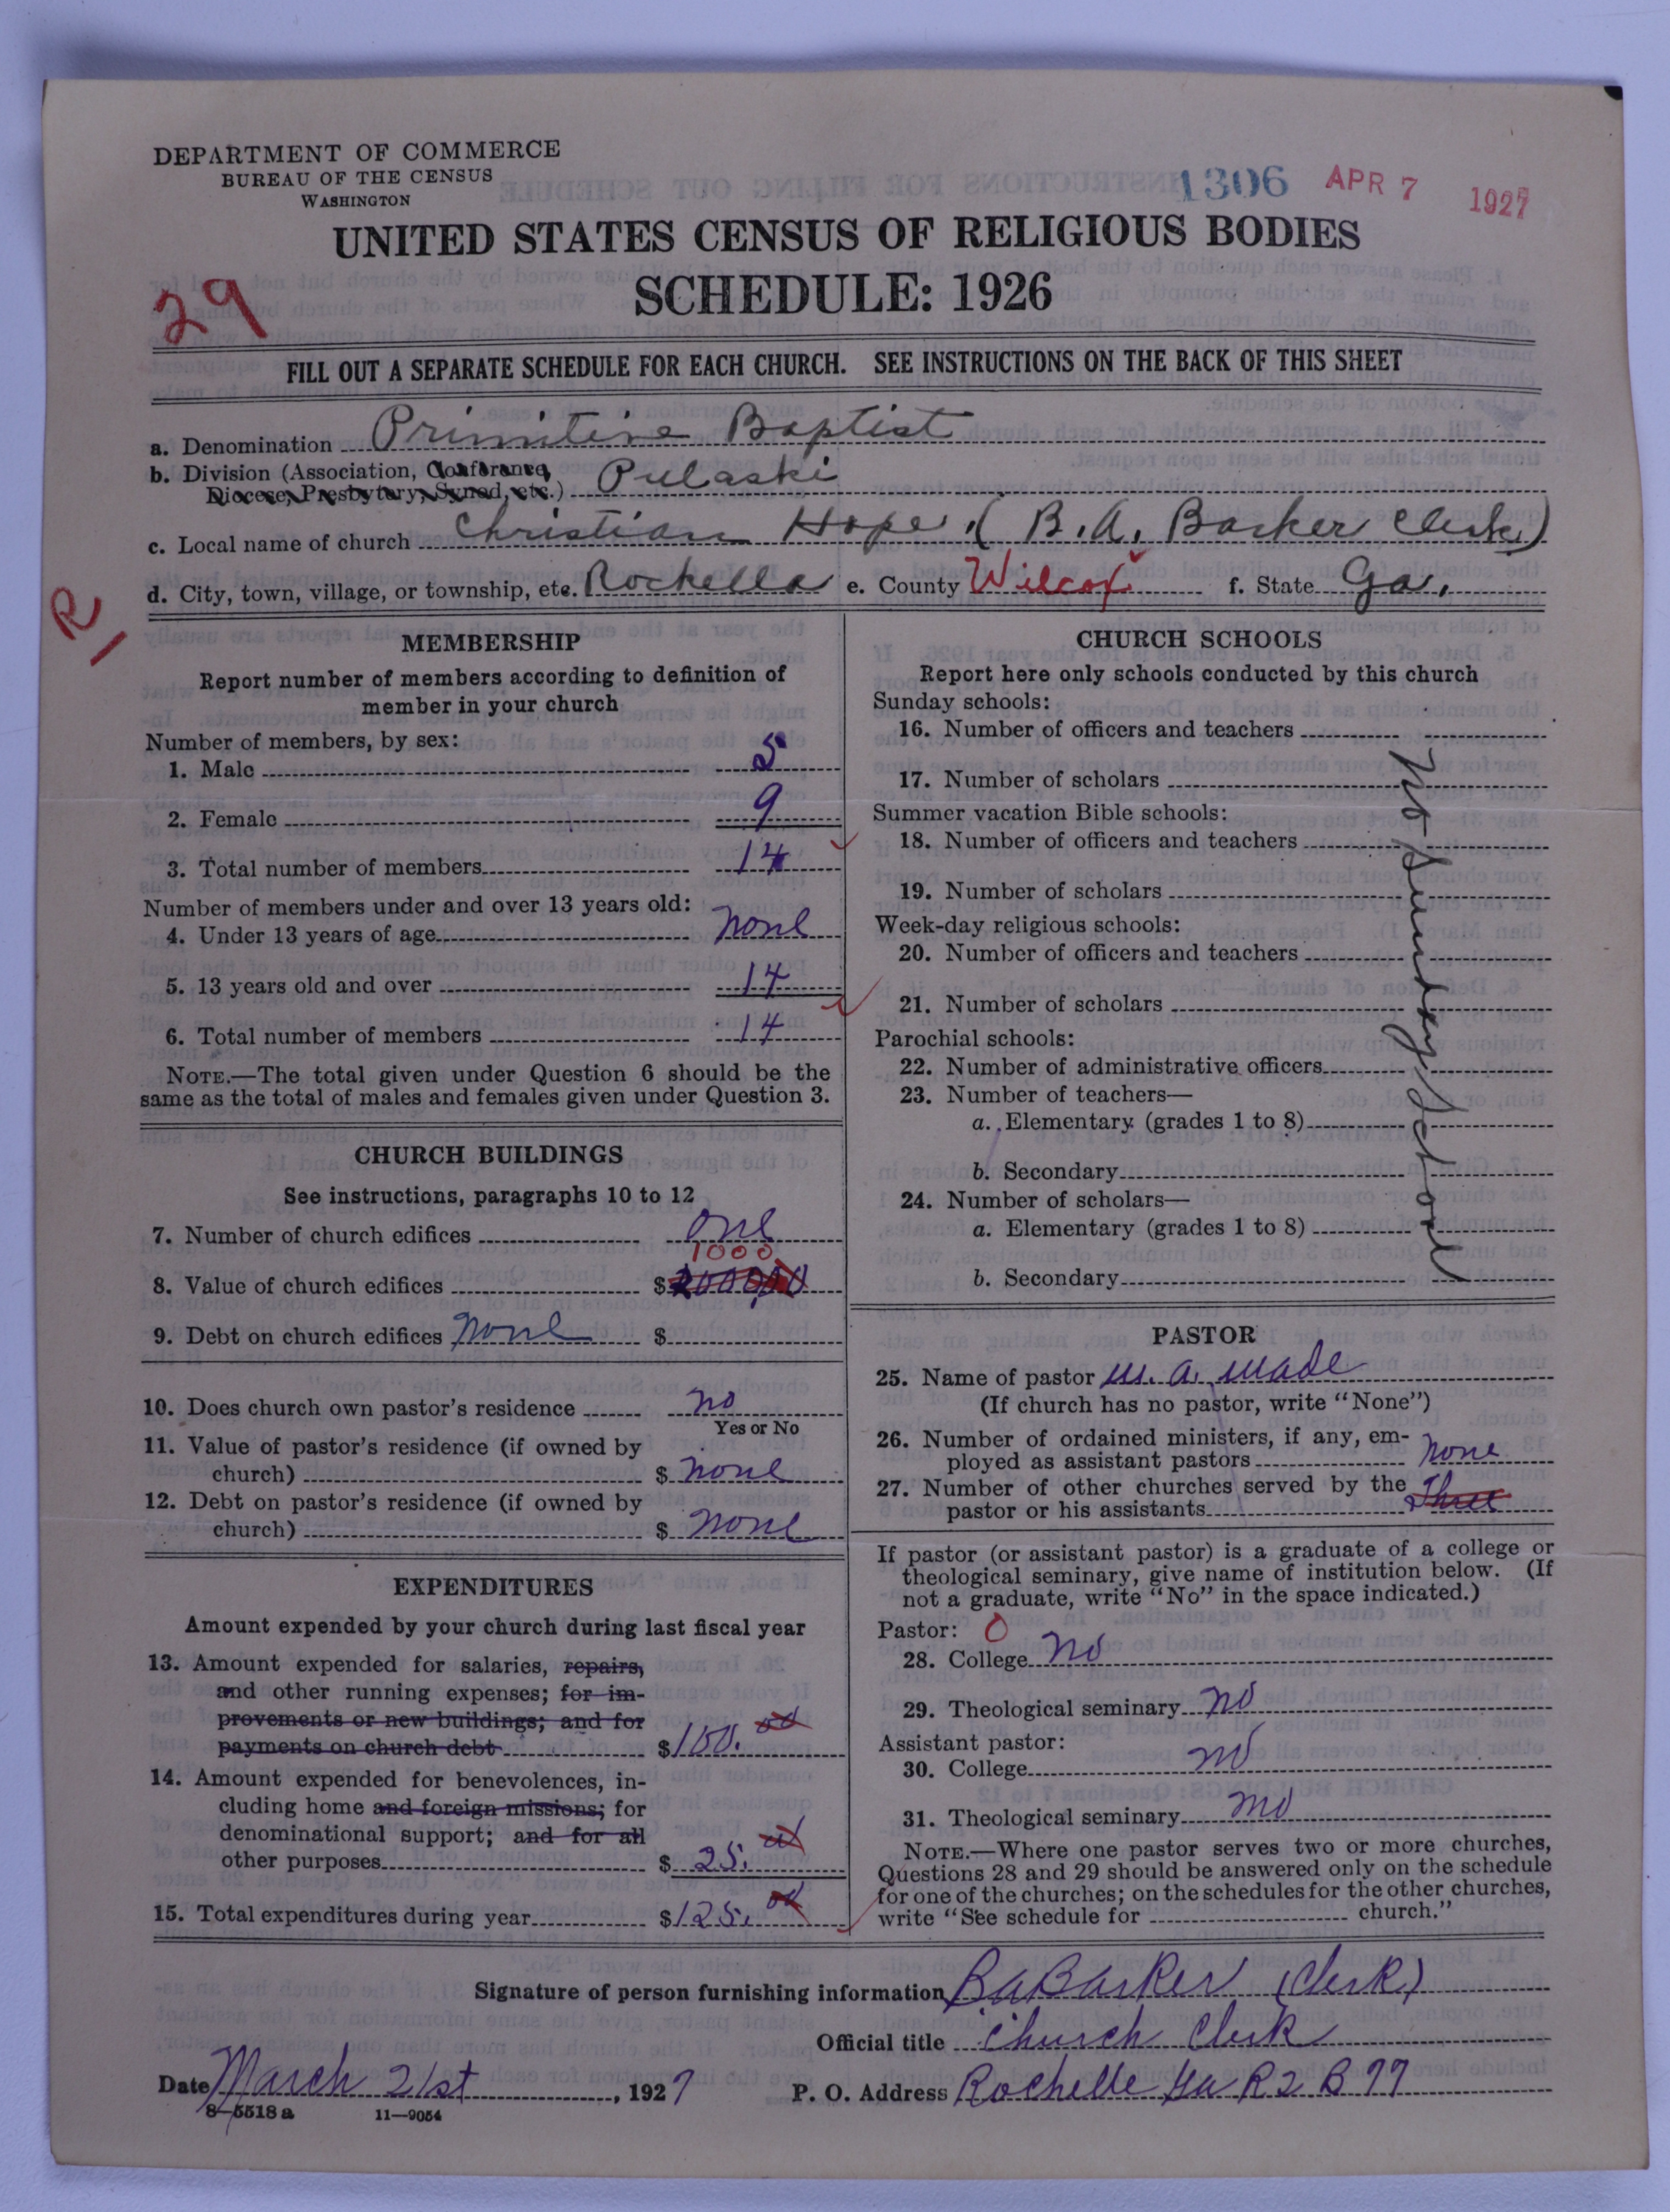 DEPARTMENT OF COMMERCE
BUREAU OF THE CENSUS
WASHINGTON
1306 APR 7 1927
UNITED STATES CENSUS OF RELIGIOUS BODIES
SCHEDULE: 1926
29
FILL OUT A SEPARATE SCHEDULE FOR EACH CHURCH. SEE INSTRUCTIONS ON THE BACK OF THIS SHEET
a. Denomination Primitive Baptist
b. Division (Association, Conference, Pulaski
Diocese, Presbytery, Synod, etc.)
c. Local name of church Christian Hope. (B. A. Barker Clerk)
d. City, town, village, or township, etc. Rochelle e. County Wilcox f. State Ga.
R
MEMBERSHIP
Report number of members according to definition of
member in your church
Number of members, by sex:
1. Male 5
2. Female 9
3. Total number of members 14
Number of members under and over 13 years old:
4. Under 13 years of age none
5. 13 years old and over 14
6. Total number of members 14
NOTE.—The total given under Question 6 should be the
same as the total of males and females given under Question 3.
CHURCH BUILDINGS
See instructions, paragraphs 10 to 12
7. Number of church edifices one
1000
8. Value of church edifices $2000.00
9. Debt on church edifices none $
10. Does church own pastor's residence no
Yes or No
11. Value of pastor's residence (if owned by
church) $ none
12. Debt on pastor's residence (if owned by
church) $ none
EXPENDITURES
Amount expended by your church during last fiscal year
13. Amount expended for salaries, repairs,
and other running expenses; for im-
provements or new buildings; and for
payments on church debt $100.00
14. Amount expended for benevolences, in-
cluding home and foreign missions; for
denominational support; and for all
other purposes $ 25.00
15. Total expenditures during year $125.00
CHURCH SCHOOLS
Report here only schools conducted by this church
Sunday schools:
16. Number of officers and teachers
17. Number of scholars
Summer vacation Bible schools:
18. Number of officers and teachers
19. Number of scholars
Week-day religious schools:
20. Number of officers and teachers
21. Number of scholars
Parochial schools:
22. Number of administrative officers
23. Number of teachers—
a. Elementary (grades 1 to 8)
b. Secondary
24. Number of scholars—
a. Elementary (grades 1 to 8)
b. Secondary
No Sunday School
PASTOR
25. Name of pastor W. A. Wade
(If church has no pastor, write "None")
26. Number of ordained ministers, if any, em-
ployed as assistant pastors none
27. Number of other churches served by the
pastor or his assistants Three
If pastor (or assistant pastor) is a graduate of a college or
theological seminary, give name of institution below. (If
not a graduate, write "No" in the space indicated.)
Pastor: 0
28. College no
29. Theological seminary no
Assistant pastor:
30. College no
31. Theological seminary no
NOTE.—Where one pastor serves two or more churches,
Questions 28 and 29 should be answered only on the schedule
for one of the churches; on the schedules for the other churches,
write "See schedule for church."
Signature of person furnishing information B A Barker (Clerk)
Official title Church Clerk
Date March 21st, 1927 P. O. Address Rochelle Ga R 2 B 77
8—5518 a 11—9054